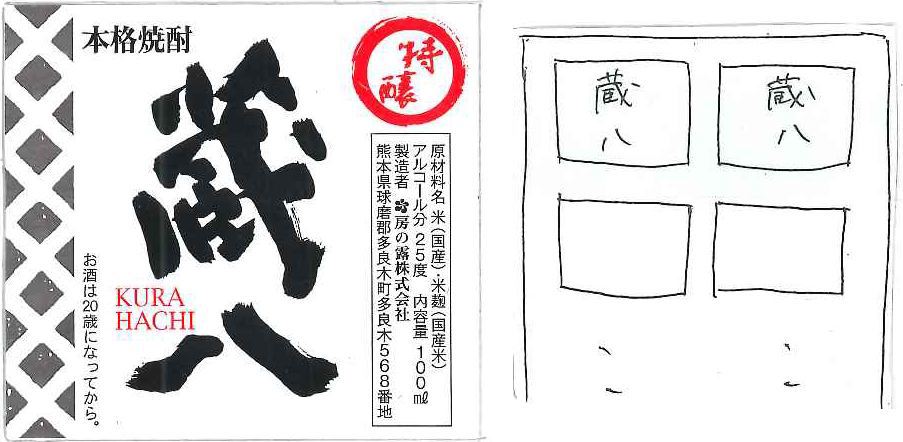 本格焼酎
特醸
蔵八
KURA
HACHI
お酒は20歳になってから。
原材料名 米(国産)・米麹(国産米)
アルコール分 25度 内容量 100㎖
製造者 房の露株式会社
熊本県球磨郡多良木町多良木568番地
蔵八
蔵八